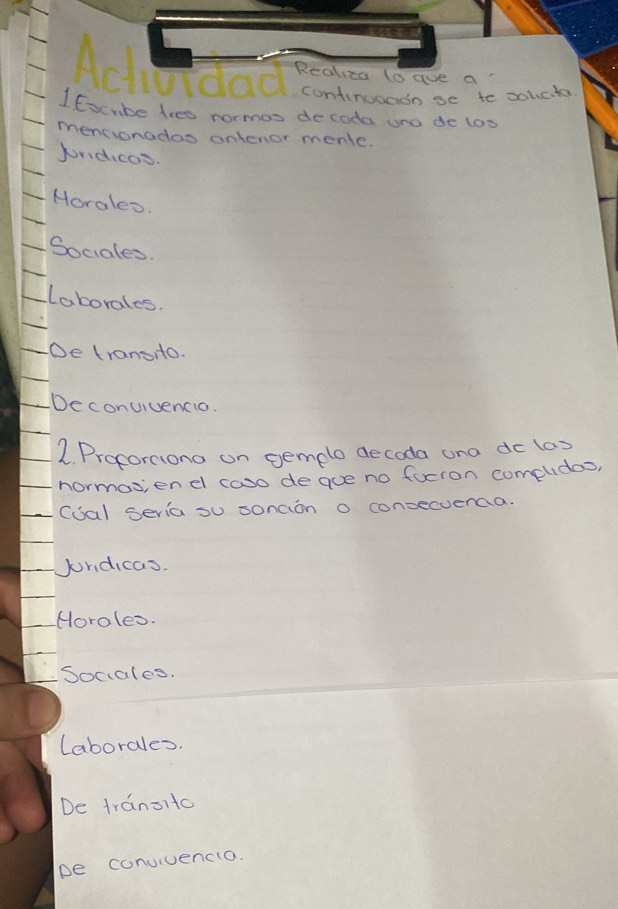 Actividad Realiza lo que a
continuación se te solicita.
1. Escribe tres normas de cada una de las
mencionadas anterior mente.
Jurídicas.
Morales.
Sociales.
Laborales.
De transito.
De convivencia.
2. Proporciona un ejemplo de cada una de las
normas; en el caso de que no fueran cumplidas,
Cúal sería su sanción o consecuencia.
Jurídicas.
Morales.
Sociales.
Laborales.
De tránsito
De convivencia.